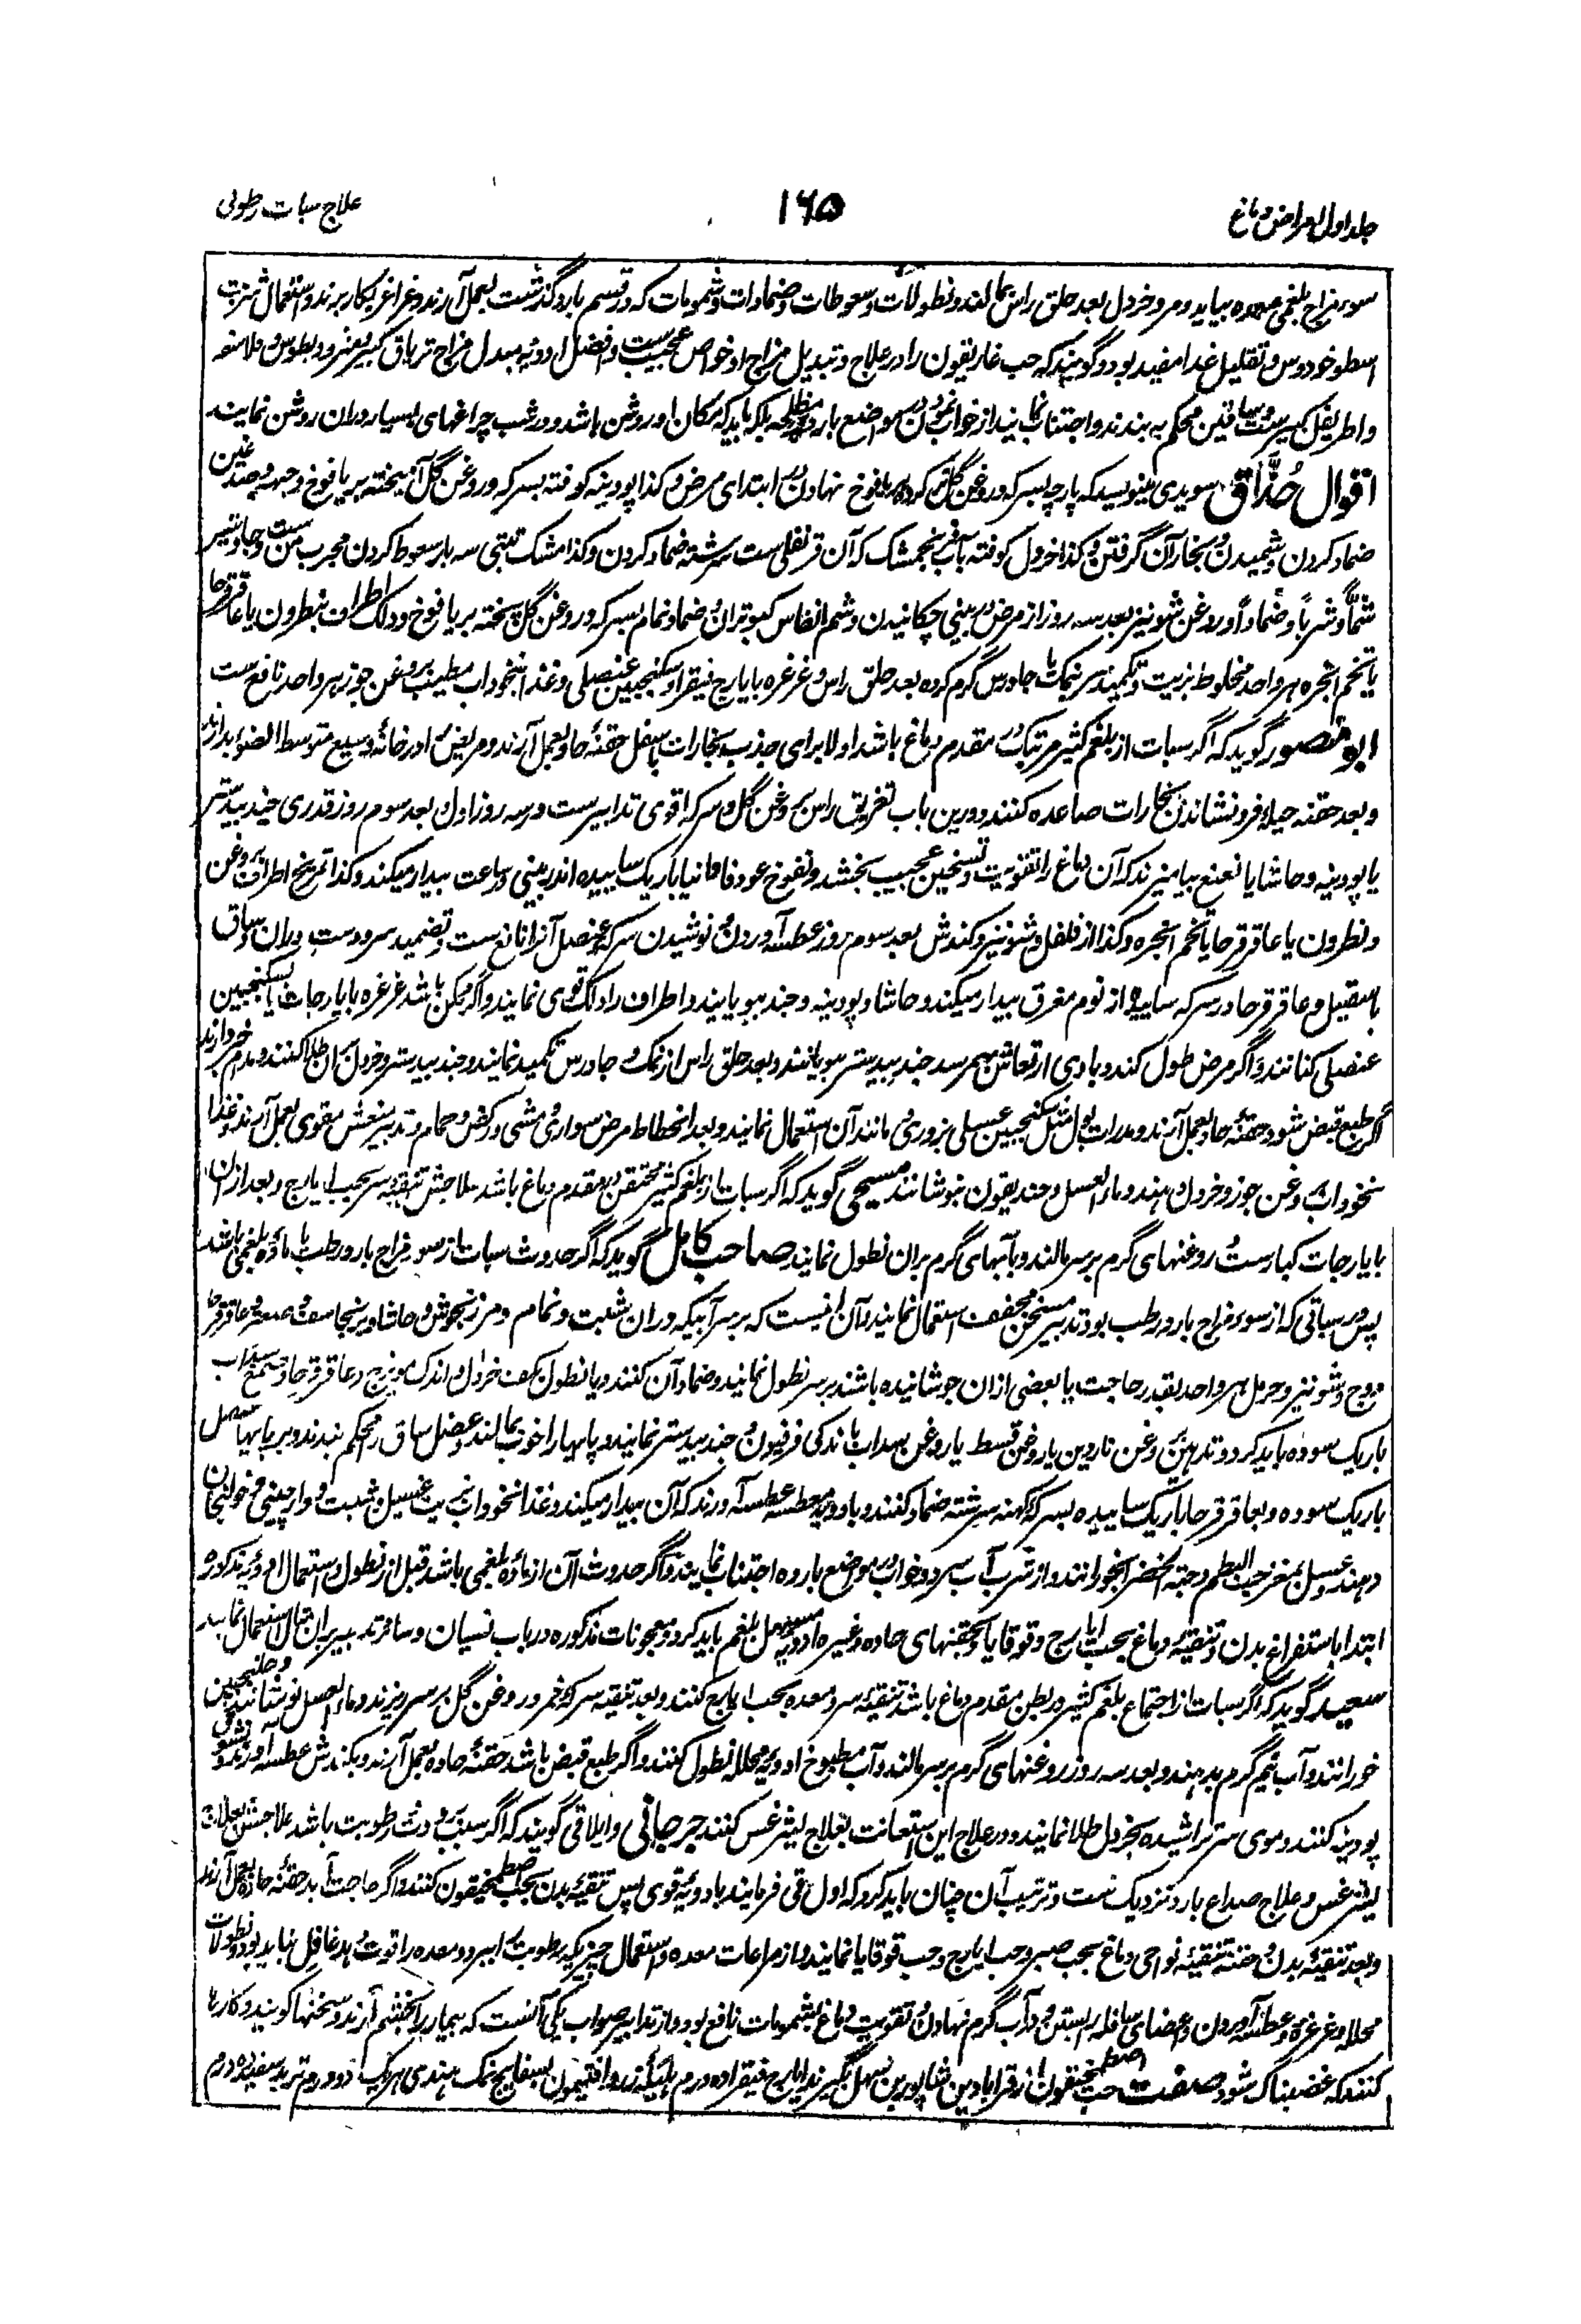 جلد اول امراض دماغ
۱۶۵
علاج سبات رطوبی
سوء مزاج بلغمی معده بیاید و مر و خردل بعد حلق راس بمالند و نطولات و سعوطات و ضمادات و شمومات که در قسم بارد گذشت بعمل آرند و غراغر بکار برند و استعمال شربت
اسطوخودوس و تقلیل غذا مفید بود و گویند که حب غاریقون را در علاج و تبدیل مزاج او خواص عجیب ست و افضل ادویه مبدل مزاج تریاق کبیر و مثرودیطوس و فلاسفه
و اطریفل کبیر ست و ساقین محکم به بندند و اجتناب نمایند از خواب نمودن در مواضع بارد مظلمه بلکه باید که مکان او روشن باشد و در شب چراغهای بسیار دران روشن نمایند
اقوال حُذّاق سویدی مینویسد که پارچه بسرکه و روغن گل تر کرده بر یافوخ نهادن در ابتدای مرض و کذا پودینه کوفته بسرکه و روغن گل آمیخته بر یافوخ و جبهه و صدغین
ضماد کردن و شمیدن و بخار آن گرفتن و کذا خردل کوفته بآب فرنجمشک که آن قرنفلی ست سرشته ضماد کردن و کذا مشک تبتی سه بار سعوط کردن مجرب من ست و جاوشیر
شماً و شرباً و ضماداً و روغن شونیز بعد سه روز از مرض در بینی چکانیدن و شم انفاس کبوتران و ضماد نمام بسرکه و روغن گل پخته بر یافوخ و دلک اطراف بنطرون یا عاقرقرحا
یا تخم انجره هر واحد مخلوط بزیت و تکمید سر بنمک یا جاورس گرم کرده بعد حلق راس و غرغره بایارج فیقرا و سکنجبین عنصلی و غذا نخوداب مطیب بروغن جوز هر واحد نافع ست
ابو منصور گوید که اگر سبات از بلغم کثیر مرتبک در مقدم دماغ باشد اولا برای جذب بخارات باسفل حقنهٔ حاد بعمل آرند و مریض را در خانهٔ وسیع متوسط الضوء بدارند
و بعد حقنه حیلهٔ فرو نشاندن بخارات صاعده کنند و درین باب تغریق راس بروغن گل و سرکه اقوی تدابیر ست در سه روز اول و بعد سوم روز قدری جندبیدستر
یا پودینه و حاشا یا نعنع بیامیزند که آن دماغ را تقویت و تسخین عجیب بخشد و نفوخ عود فاوانیا باریک ساییده اندر بینی در ساعت بیدار میکند و کذا تمریخ اطراف بروغن
و نطرون یا عاقرقرحا یا تخم انجره و کذا از فلفل و شونیز و کندش بعد سوم روز عطسه آوردن و نوشیدن سرکهٔ عنصل آنرا نافع ست و تضمید سر و دست و ران و ساق
باسقیل و عاقرقرحا در سرکه ساییده از نوم مغرق بیدار میکند و حاشا و پودینه و جند بویایند و اطراف را دلک قوی نمایند و اگر ممکن باشد غرغره بایارجات یا بسکنجبین
عنصلی کنانند و اگر مرض طول کند و بادی ارتعاش بهم رسد جندبیدستر بویانند و بعد حلق راس از نمک و جاورس تکمید نمایند و جندبیدستر و خردل بران طلا کنند و مدام خبر دارند
اگر طبع قبض شود حقنهٔ حاد بعمل آرند و مدرات بول مثل سکنجبین عسلی بزوری و مانند آن استعمال نمایند و بعد انحطاط مرض سواری و مشی و رکض و حمام و تدبیر منعش مقوی بعمل آرند و غذا
نخوداب بروغن جوز و خردل دهند و ماء العسل و خندیقون بنوشانند مسیحی گوید که اگر سبات از بلغم کثیر محتقن در مقدم دماغ باشد علاجش تنقیهٔ سر بحب ایارج و بعد ازان
بایارجات کبار ست و روغنهای گرم بر سر مالند و بآبهای گرم بران نطول نمایند صاحب کامل گوید که اگر حدوث سبات از سوء مزاج بارد رطب یا مادّه بلغمی باشد
پس در سباتی که از سوء مزاج بارد رطب بود تدبیر مسخن مجفف استعمال نمایند و آن اینست که بر سر آبیکه دران شبت و نمام و مرزنجوش و حاشا و برنجاسف و صعتر و عاقرقرحا
و وج و شونیز و حرمل هر واحد بقدر حاجت یا بعضی ازان جوشانیده باشند بر سر نطول نمایند و ضماد آن کنند و یا نطول بکف خردل و اندک مویزج و عاقرقرحا و سداب
باریک سوده باید کرد و تدهین بروغن ناردین یا روغن قسط یا روغن سداب باندکی فرفیون و جندبیدستر نمایند و پایها را خوب بمالند و عضل ساق را محکم بندند و بر پایها عنصل
باریک سوده و بعاقرقرحا باریک ساییده بسرکهٔ کهنه سرشته ضماد کنند و بادویهٔ معطسه عطسه آورند که آن بیدار میکند و غذا نخوداب بزیت غسیل و شبت و دارچینی و خولنجان
دهند و عسل بمغز حب البطم و حبة الخضرا بخورانند و از شرب آب سرد و خواب در مواضع بارده اجتناب نمایند و اگر حدوث آن از ماده بلغمی باشد قبل از نطول و استعمال ادویهٔ مذکوره
ابتدا باستفراغ بدن و تنقیهٔ دماغ بحب ایارج و قوقایا و بحقنهای حاده و غیره ادویه مسهل بلغم باید کرد و معجونات مذکوره در باب نسیان و سائر تدبیر آن استعمال نمایند
سعید گوید که اگر سبات از اجتماع بلغم کثیر در بطن مقدم دماغ باشد تنقیهٔ سر و معده بحب ایارج کنند و بعد تنقیه سرکهٔ خمر و روغن گل بر سر ریزند و ماء العسل نوشانند و جلنجبین
خورانند و آب نیم گرم بدهند و بعد سه روز روغنهای گرم بر سر مالند و آب مطبوخ ادویهٔ محلله نطول کنند و اگر طبع قبض باشد حقنهٔ حاده بعمل آرند و بکندش عطسه آورند و
پودینه کنند و موی سر تراشیده بخردل طلا نمایند و در علاج این استعانت بعلاج لیثرغس کنند جرجانی و ایلاقی گویند که اگر سبب حدوث رطوبت باشد علاجش بعلاج
لیثرغس و علاج صداع بارد نزدیک ست و ترتیب آن چنان باید کرد که اول قی فرمایند بادویهٔ قوی پس تنقیهٔ بدن بحب اصطمخیقون کنند و اگر حاجت آید حقنه حاده بعمل آرند
و بعد تنقیهٔ بدن و حقنه تنقیهٔ نواحی دماغ بحب صبر و حب ایارج و حب قوقایا نمایند و از مراعات معده و استعمال چیزیکه رطوبت را ببرد و معده را قوت دهد غافل نباید بود و نطولات
محلله و غرغره و عطسه آوردن و اعضای سافله را بستن و در آب گرم نهادن و تقویت دماغ بشمومات نافع بود و از تدابیر صواب یکی آنست که بیمار را بخشم آرند و سخنها گویند و کارها
کنند که غضبناک شود صفت حب اصطمخیقون از قرابادین شاپور بن سهل بگیرند ایارج فیقرا ده درم هلیلهٔ زرد افتیمون بسفایج نمک هندی هر یک دو درم تربد سفید ده درم